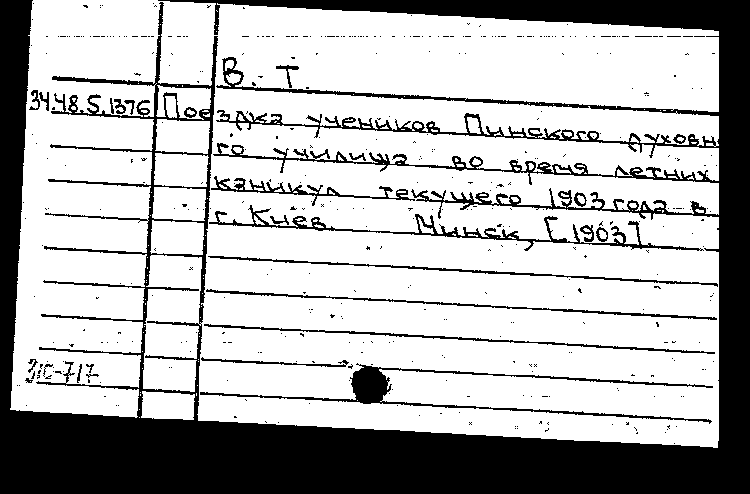 В. Т.
34.48.5.1376 Поездка учеников Пинского духовн
го училища во время летних
каникул текущего 1903 года в
г. Киев. Минск, [1903].
31с-717